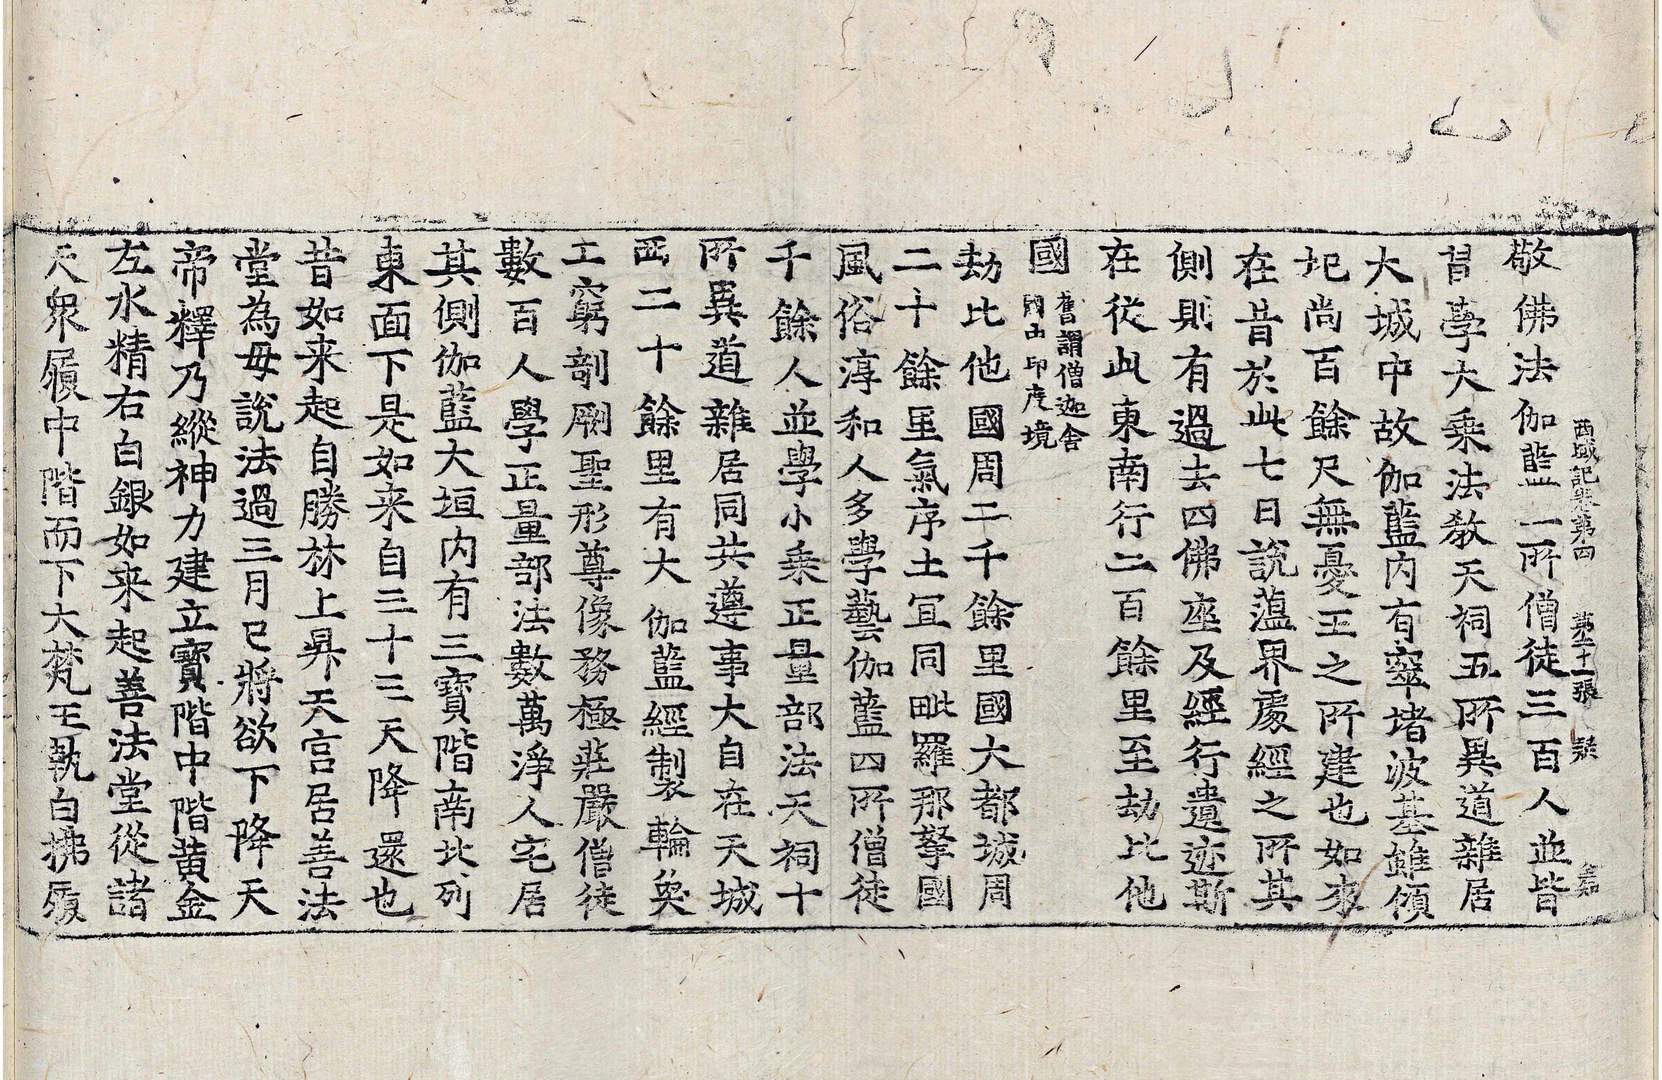 西域記卷第四　第二十一張　號
敬佛法伽藍二所僧徒三百人並皆
習學大乘法教天祠五所異道雜居
大城中故伽藍內有窣堵波基雖傾
圮尚百餘尺無憂王之所建也如來
在昔於此七日說薀界處經之所其
側則有過去四佛座及經行遺迹斯
在從此東南行二百餘里至劫比他
國
舊謂僧迦舍
國中印度境
劫比他國周二千餘里國大都城周
二十餘里氣序土宜同毗羅那拏國
風俗淳和人多學藝伽藍四所僧徒
千餘人並學小乘正量部法天祠十
所異道雜居同共遵事大自在天城
西二十餘里有大伽藍經製輪奐
工窮剞劂聖形尊像務極莊嚴僧徒
數百人學正量部法數萬淨人宅居
其側伽藍大垣內有三寶階南北列
東面下是如来自三十三天降還也
昔如来起自勝林上昇天宮居善法
堂為母說法過三月已將欲下降天
帝釋乃縱神力建立寶階中階黄金
左水精右白銀如来起善法堂從諸
天衆履中階而下大梵王執白拂履